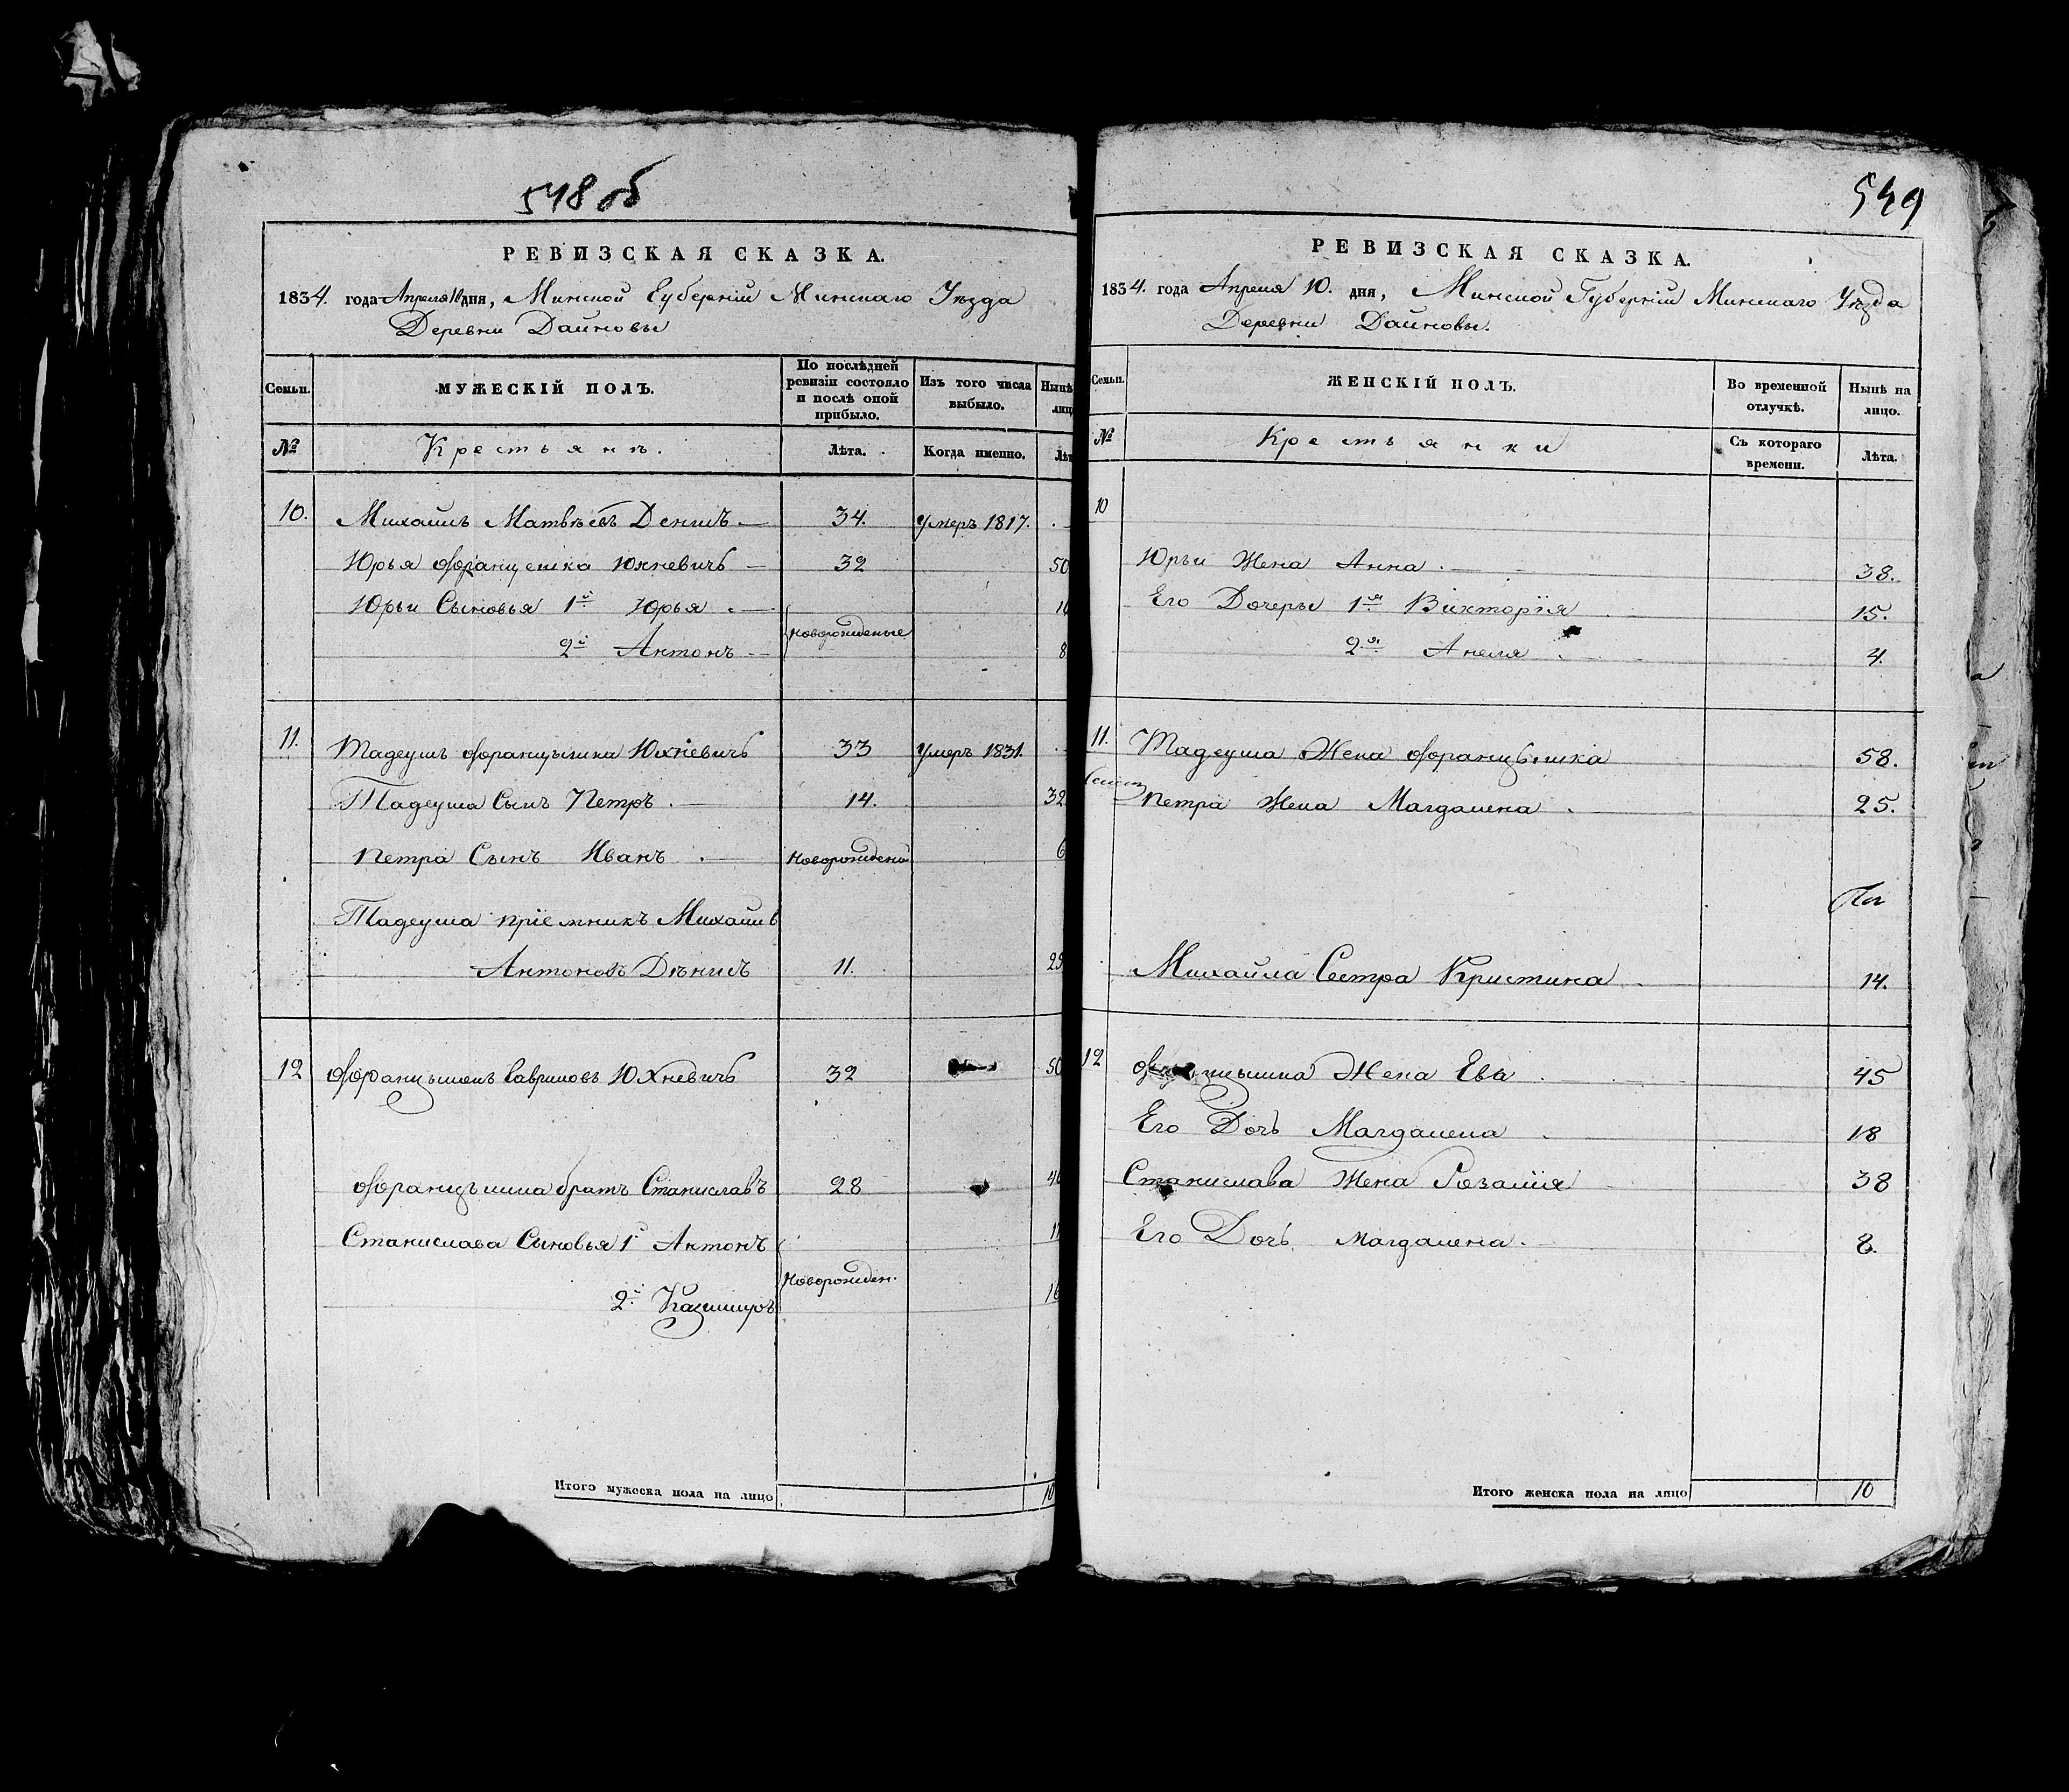 548 об
РЕВИЗСКАЯ СКАЗКА.
1834. года Апреля 10 дня, Минской Губерніи Минскаго Уѣзда
Деревни Дайновы
Семьи. МУЖЕСКІЙ ПОЛЪ. По послѣдней ревизіи состояло и послѣ оной прибыло. Изъ того числа выбыло. Нынѣ лиц
№ Крестьянъ. Лѣта. Когда именно. Лѣт
10. Михайлъ Матвѣевъ Денисъ 34. умеръ 1817.
Юрья Францишка Юхневичъ 32 50
Юрьи Сыновья 1й Юрья
новорожденые
2й Антонъ 8
11. Тадеушъ Францышка Юхневичъ 33 умеръ 1831.
Тадеуша Сынъ Петръ 14. 32
Петра Сынъ Иванъ новорожденъ 6
Тадеуша пріемникъ Михайлъ
Антоновъ Дѣнисъ 11. 29
12 Францышекъ Гавриловъ Юхневичъ 32 50
Францышка братъ Станиславъ 28 46
Станислава Сыновья 1й Антонъ 17
новорожден.
2й Казимиръ 16
Итого мужеска пола на лицо 10
549
РЕВИЗСКАЯ СКАЗКА.
1834. года Апреля 10. дня, Минской Губерніи Минскаго Уѣзда
Деревни Дайновы.
Семьи. ЖЕНСКІЙ ПОЛЪ. Во временной отлучкѣ. Нынѣ на лицо.
№ Крестьянки Съ котораго времени. Лѣта.
10
Юрьи Жена Анна 38.
Его Дочеры 1я Викторія 15.
2я Анеля 4.
11. Тадеуша Жена Францышка 58.
Петра Жена Магдалена 25.
Михайла Сестра Кристина 14.
12 Францышка Жена Ева 45
Его Дочь Магдалена 18
Станислава Жена Розалія 38
Его Дочь Магдалена 8.
Итого женска пола на лицо 10